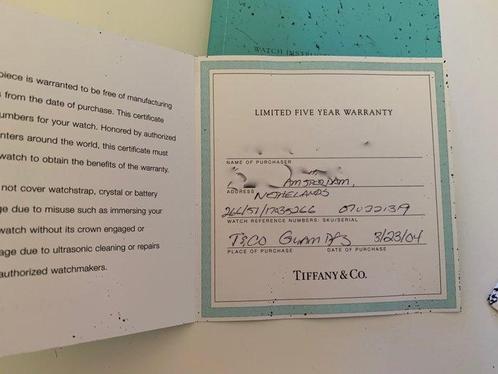 WATCH INSTRU
piece is warranted to be free of manufacturing
from the date of purchase. This certificate
numbers for your watch. Honored by authorized
nters around the world, this certificate must
watch to obtain the benefits of the warranty.
not cover watchstrap, crystal or battery
ge due to misuse such as immersing your
watch without its crown engaged or
age due to ultrasonic cleaning or repairs
authorized watchmakers.
LIMITED FIVE YEAR WARRANTY
NAME OF PURCHASER
AMSTERDAM,
ADDRESS NETHELANDS
WATCH REFERENCE NUMBERS: SKU/SERIAL
T&CO GUAM DFS 3/23/04
PLACE OF PURCHASE DATE OF PURCHASE
TIFFANY & CO.